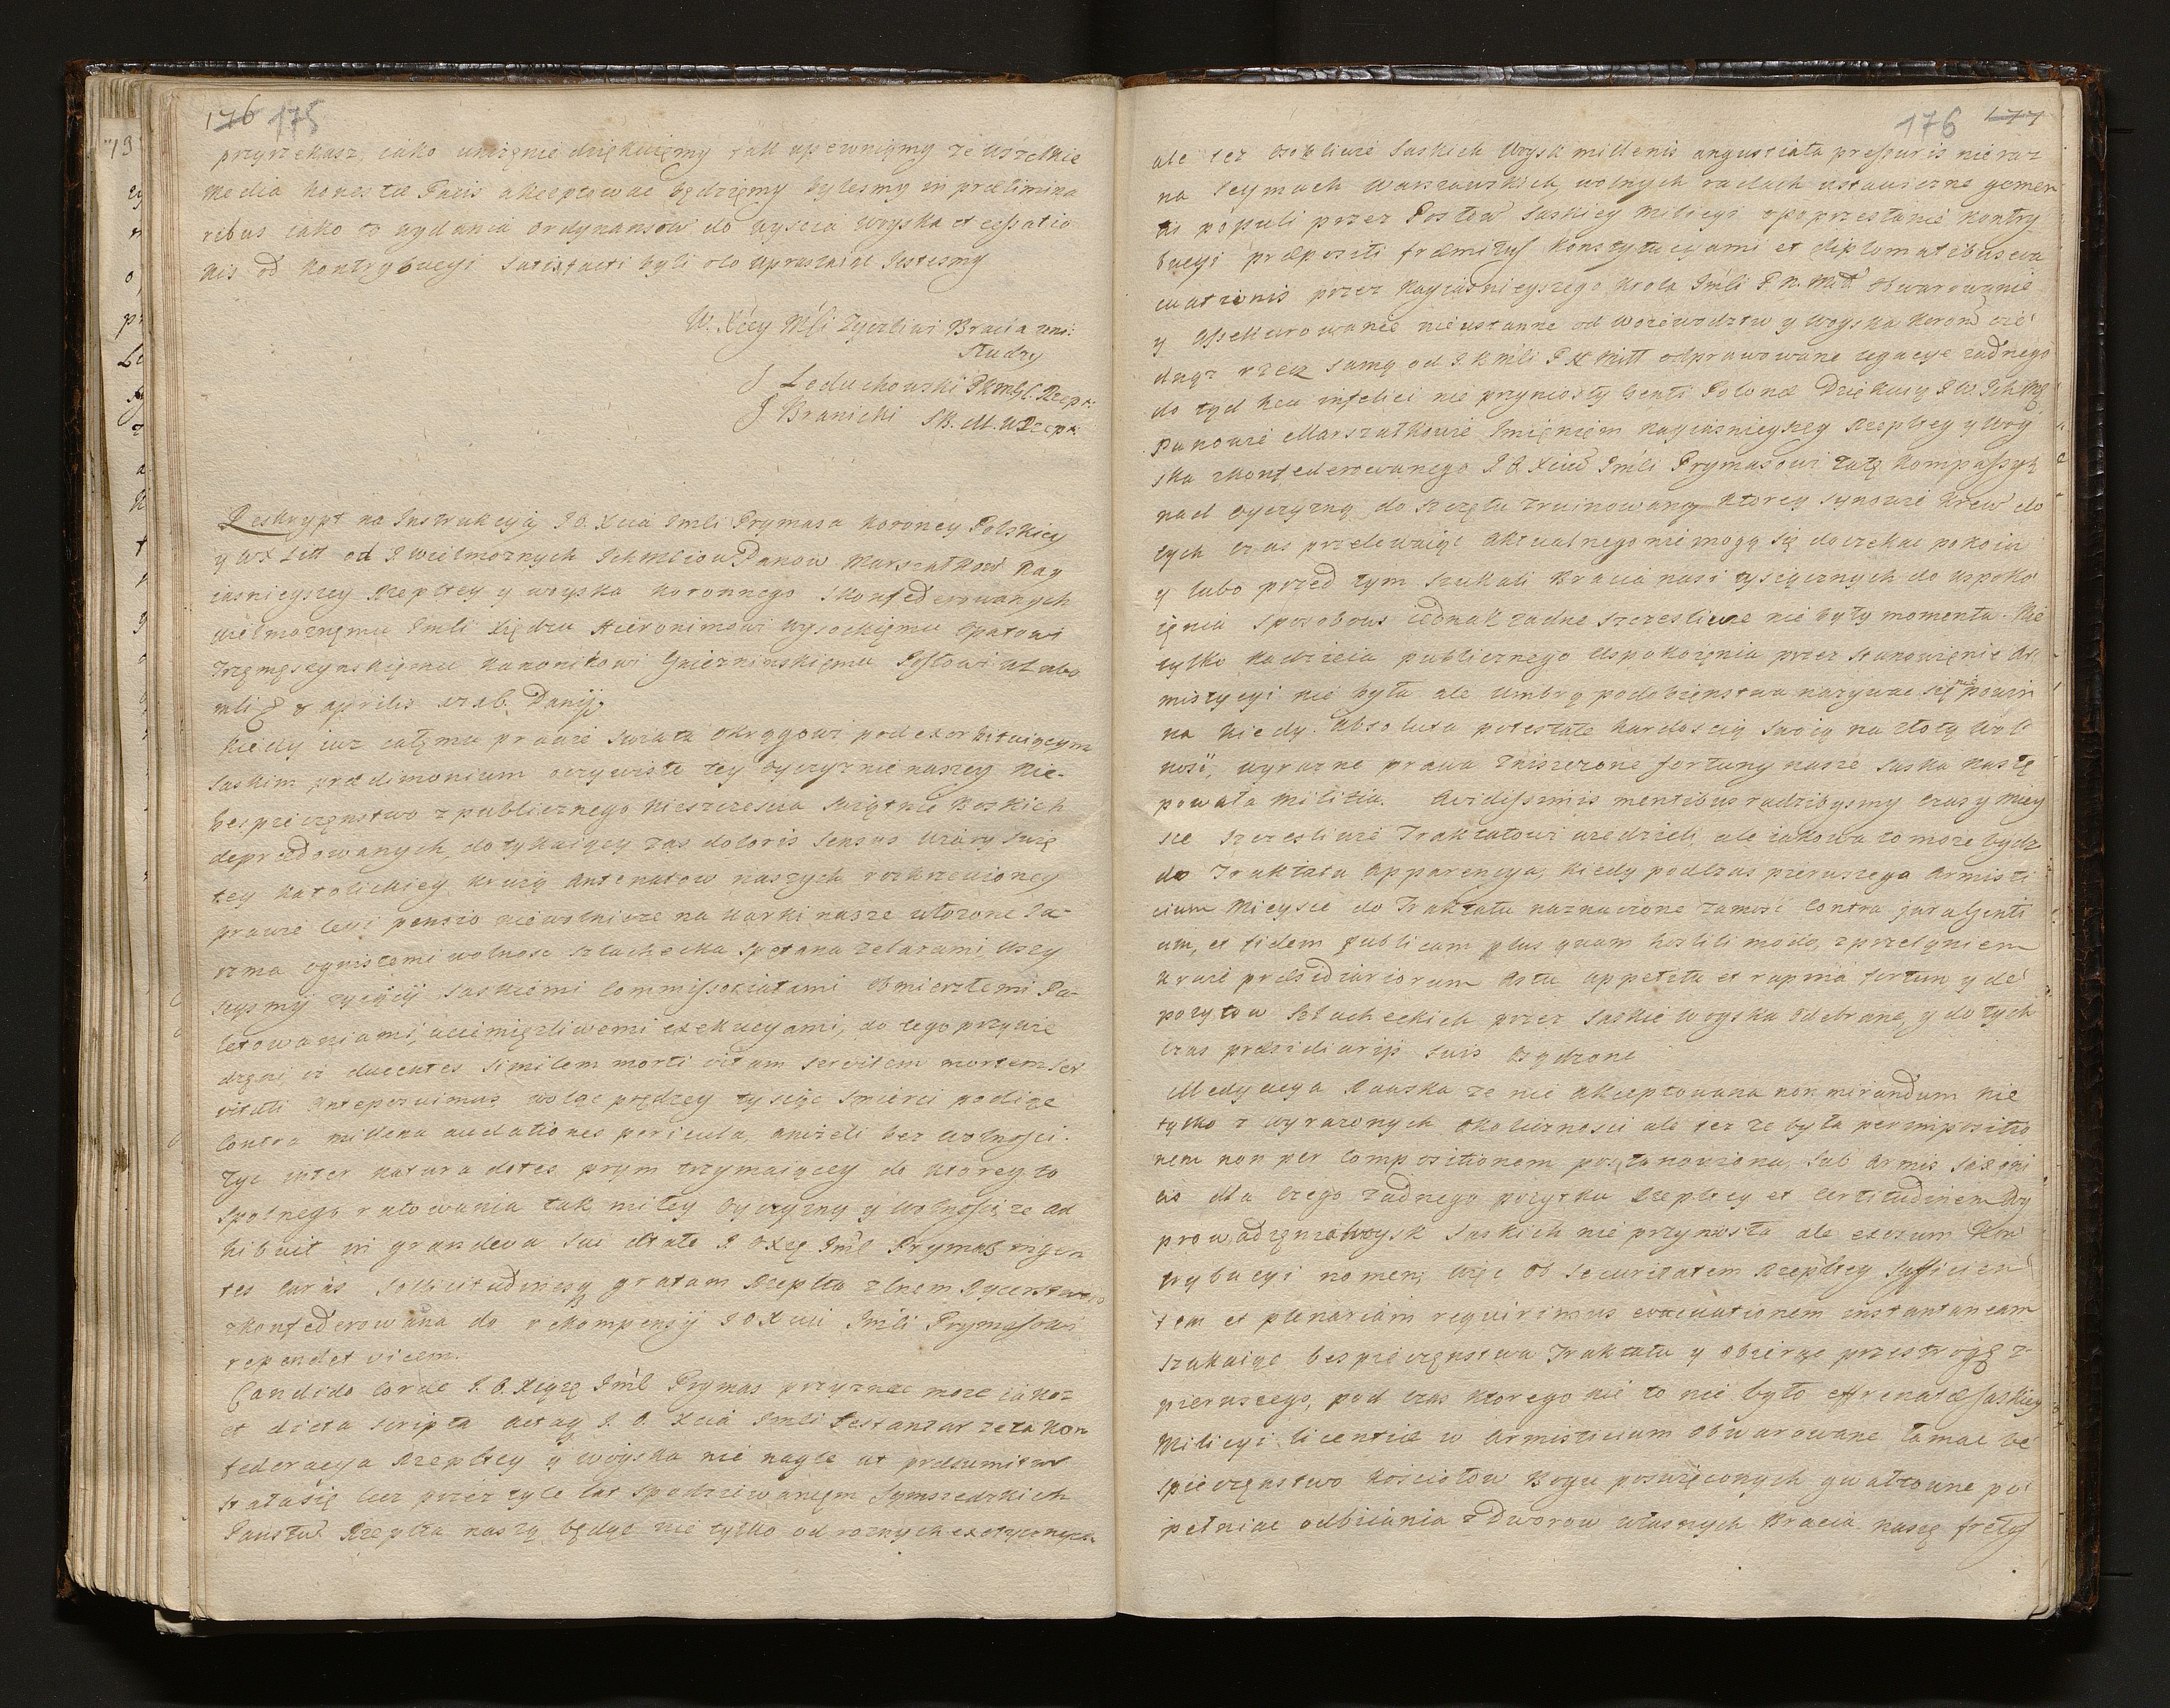 176 175
przyrzekasz, iako uniżęnie dziękuięmy tak upewnięmy że wszelkie
media honestæ Pacis akceptować będzięmy bylesmy in prælimina
ribus iako to wydania ordynansow do wyscia woyska et cessatio
nis od kontrybucyi satisfacti byli o co upraszaiąc Jestesmy
W. Xcey Mśći życzliwi Bracia uni:
słudzy
J Leduchowski
J Branicki
Reskrypt na Instrukcyią J O. Xcia Jmśći Prymasa Koroney Polskiey
y WX Litt od J wielmoznych Ich Mściow Panow Marszałkow Nay
iasnieyszey Rzepltey y woyska koronnego skonfederowanych
wielmoznęmu Jmśći Xiędzu Hieronimowi wysockięmu Opatowi
Trzęmęszynskięmu kanonikowi Gniezninskięmu Posłowi
8 aprilis Danÿ.
Kiedy iuz całęmu prawie swiata okręgowi pod exorbituiącym
saskim prædimonium oczywiste tey oyczyznie naszey nie-
bespieczęnstwo z publicznego nieszczescia swiątnic Boskich
deprædowanych, dotykaiący zas doloris sensus wiary swię
tey katolickiey krwią Antenatow naszych rozkrzewioney
prawie legi pensio niewolnicze na karki nasze włozone Ja-
rzma ognistemi wolnosc szlachecka spętana zelazami wszy
scysmÿ zyiąsÿ saskiemi Commissoriatami obmierzłemi Pa-
letowaniami, uciemięzliwemi exekucyami, do tego przywie
dzęni ut ducentes similem morti vitam servilem mortem ser
vituti anteponimus, woląc prędzey tysiąc smierci podiąc
Contra millena audationes pericula, anizeli bez wolnosci.
Zyc inter natura dotes prym trzymaiącey do ktorey to
spolnego ratowania tak miłey oyczyzny y wolnosci, ze ad
hibuit in grandeva sui ætate J OXzę Jmśc Prymas vigen
tes curas sollicitudinesq gratam Rzeplta z Inem Rycerstwo
zkonfederowana do rekompensÿ J O Xcia Jmśći Prymasowi
rependet vicem.
Candido corde J. O. Xiązę Jmśc Prymas przyznac moze iakoz
et dicta scripta actaq J. O. Xcia Jmśći testantur ze ta Kon
federacya Rzepltey y woyska nie nagle ut præsumitur
stałasię lecz przez tyle lat spodziewanięm Symszedzkich
Panstw Rzeplta naszą będąc nie tylko od roznych exotyconych
176 177
ale tez osobliwie saskich woysk millenis angustiata pressuris nieraz
na seymach warszawskich, wolnych radach ustawiczne gemen
tis populi przez Posłow saskiey milicyi opoprzestanie kontry
bucyi præpositi præmissis konstytucyami et diplomatibus eva
cuationis przez Nayiasnieyszego krola Jmśći P. N. Młł. obwarowanie
y assekurowanie nieustanne od woiewodztw y woyska koron cię
dnąz rzecz samą od J K mśći P N Miłł odprawowane legacye zadnego
do tyd hcu infelici nie przyniosły genti Polonæ Dziękuią J W. Ich Mę
Panowie Marszałkowie Imięnięm nayiasnieyszey Rzepltey y woy
ska zkonfederowanego J O. Xciu Jmśći Prymasowi zatę kompassyą
nad oyczyzną do szczętu zruinowaną ktorey synowie krew do
tych czas przelewaiąc aktualnego nie mogą się doczekac pokoiu
y lubo przed tym szukali Bracia nasi tysięcznych do uspoko
ięnia sposobow iednak zadne szczesliwe nie były momenta. Nie
tylko nadzieia publicznego uspokoięnia przez stanowięnie Ar
mistycyi nie była ale umbrą podobięnstwa nazywac się nie powin
na kiedy absoluta potestate hardoscią swoią na złotą wol
nosc, wyrazne prawa zniszczone fortuny nasze saska nastę
powała militia. Avidissimis mentibus radzibysmy czas y miey
sce szczesliwie Traktatowi wiedzieli, ale iakowa to moze bydz
do Traktatu apparencya, kiedy podczas pierwszego armisti
cium mieysce do Traktatu naznaczone zamosc contra jura genti
um, et fidem publicam plus quam hostili modo, z przelęniem
krwie præsidiariorum astu appetita et rapina fortun y de
pozytow szlacheckich przez saskie woyska odebrane, y do tych
czas præsidiarijs suis osądzone
Medyacya Rawska ze nie akceptowana non mirandum nie
tylko z wyrazonych okolicznosci ale tez ze była per impositio
nem non per compositionem postanowiona, sub armis saxoni
cis dla czego zadnego pozytku Rzepltey et certitudinem wy
prowadzęnia woysk saskich nie przyniosła ale exosum kon
trybucyi nomen, więc ob securitatem Rzepltey sufficien
tem et plenariam requirimus evacuationem instantaneam
szukaiąc bespieczęnstwa Traktatu y obierąc przestrogę z
pierwszego, pod czas ktorego nic to nie było effrenatæ saskiey
Milicyi licentiæ w armisticium obwarowane łamac be
spieczęnstwo kosciołow Bogu poswięconych gwałtowne po
pełniac odbiiania z Dworow własnych Bracia naszę